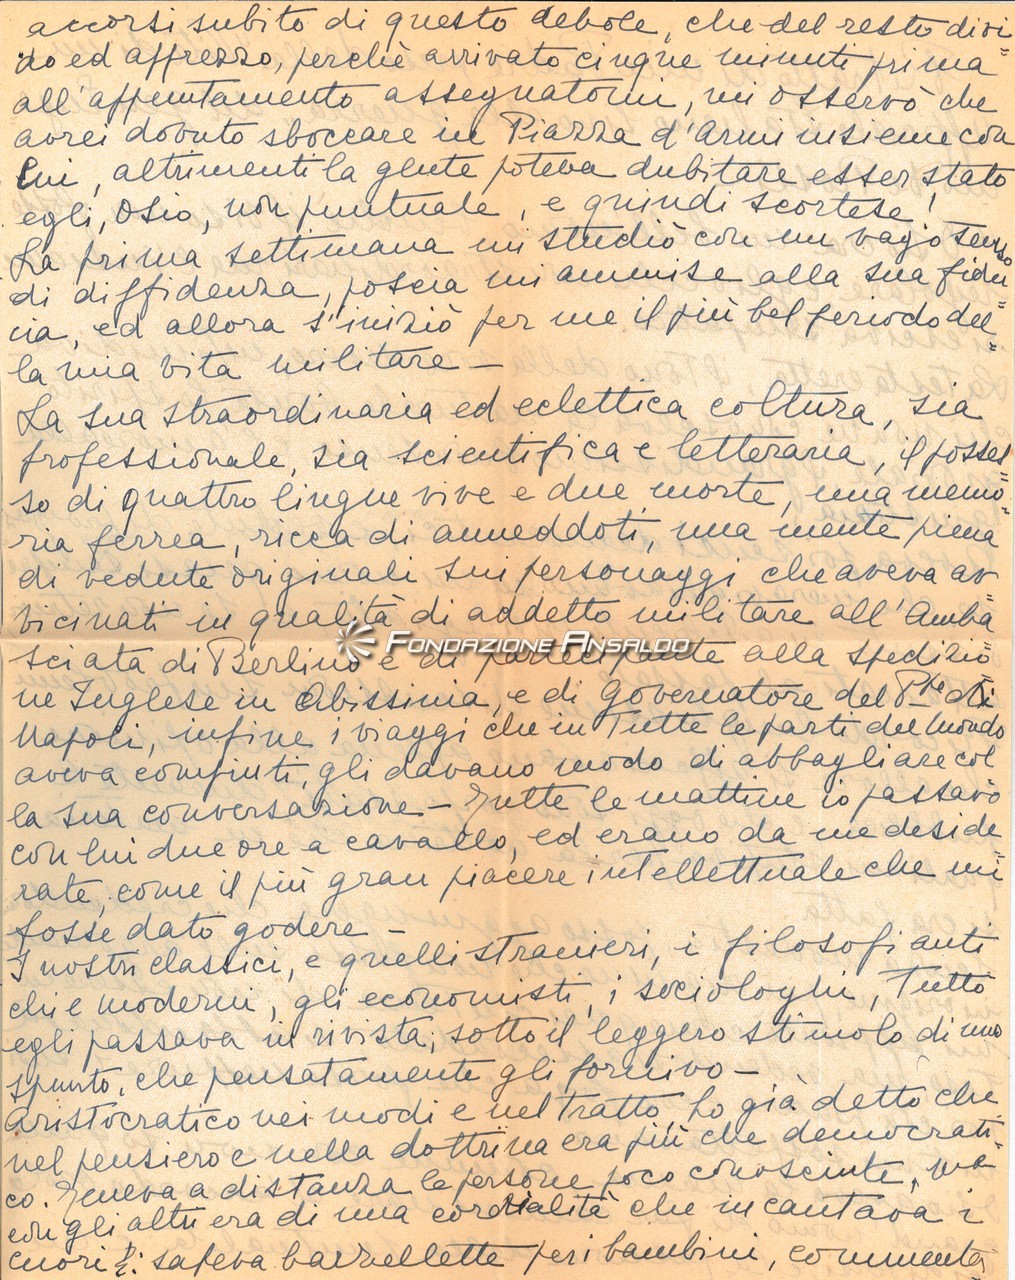 accorsi subito di questo debole, che del resto divi
do ed apprezzo, perchè arrivato cinque minuti prima
all'appuntamento assegnatomi, mi osservò che
avrei dovuto sboccare in Piazza d'Armi insieme con
lui, altrimenti la gente poteva dubitare esser stato
egli, Osio, non puntuale, e quindi scortese!
La prima settimana mi studiò con un vago senso
di diffidenza, poscia mi ammise alla sua fidu=
cia, ed allora s'iniziò per me il più bel periodo del=
la mia vita militare –
La sua straordinaria ed eclettica coltura, sia
professionale, sia scientifica e letteraria, il posses=
so di quattro lingue vive e due morte, una memo=
ria ferrea, ricca di anneddoti, una mente piena
di vedute originali sui personaggi che aveva av=
vicinati in qualità di addetto militare all'Amba=
FONDAZIONE ANSALDO
sciata di Berlino e di partecipante alla spedizio=
ne Inglese in Abissinia, e di Governatore del P.pe di
Napoli, infine i viaggi che in tutte le parti del mondo
aveva compiuti, gli davano modo di abbagliare col=
la sua conversazione – Tutte le mattine io passavo
con lui due ore a cavallo, ed erano da me deside=
rate, come il più gran piacere intellettuale che mi
fosse dato godere –
I nostri classici, e quelli stranieri, i filosofi anti
chi e moderni, gli economisti, i sociologhi, tutto
egli passava in rivista, sotto il leggero stimolo di uno
spunto, che pensatamente gli fornivo –
Aristocratico nei modi e nel tratto, ho già detto che
nel pensiero e nella dottrina era più che democrati=
co. Teneva a distanza le persone poco conosciute, ma
con gli altri era di una cordialità che incantava i
cuori: sapeva barzellette per i bambini, commenta